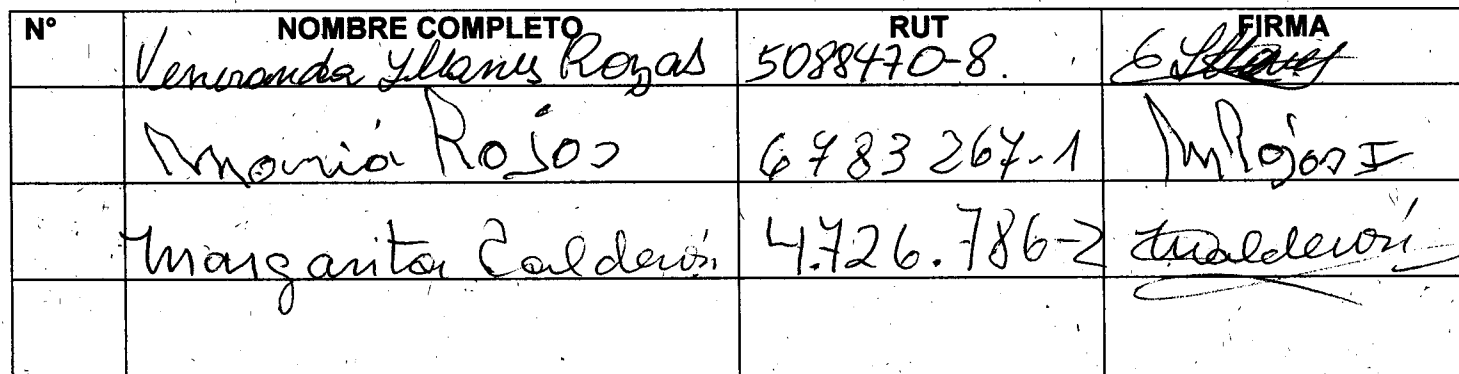 N° NOMBRE COMPLETO RUT FIRMA
Veneranda Yllanes Rozas 5088470-8.
Maria Rojos 6783267-1 MRojos I
Margarita Calderón 4.726.786-2 Mcalderón